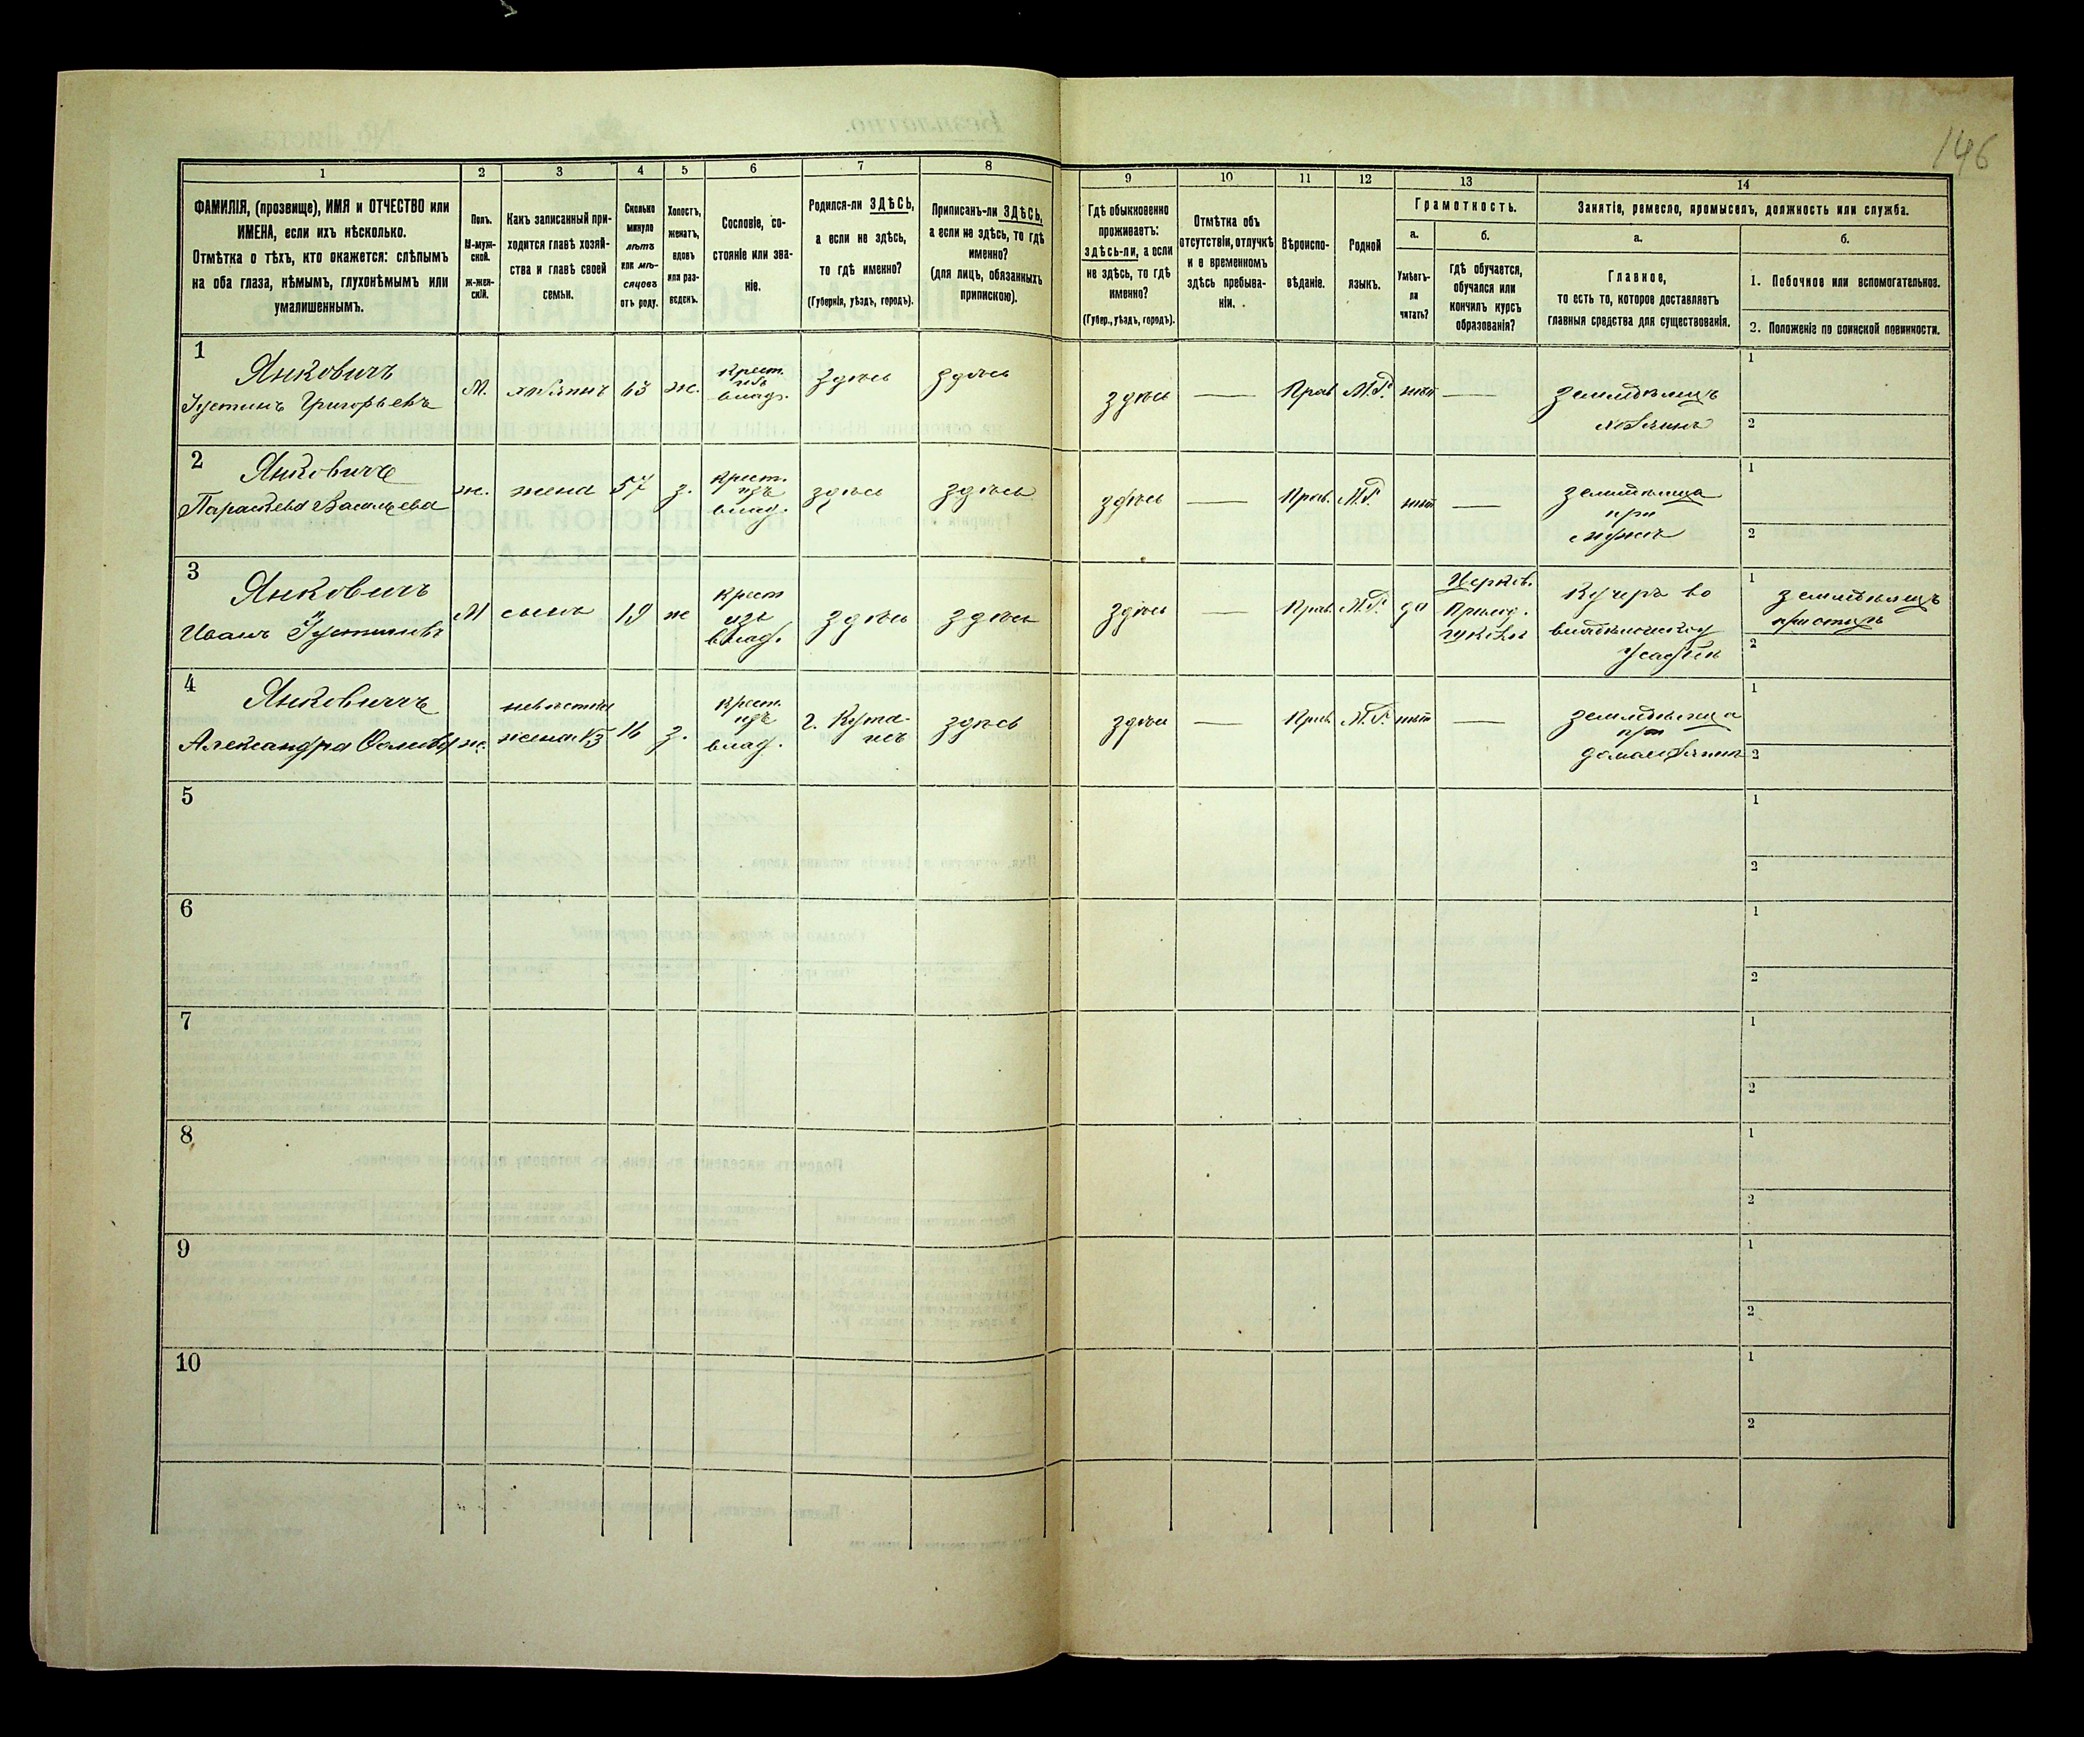 146
1
2
3
4
5
6
7
8
9
10
11
12
13
14
ФАМИЛІЯ, (прозвище), ИМЯ и ОТЧЕСТВО или
ИМЕНА, если ихъ нѣсколько.
Отмѣтка о тѣхъ, кто окажется: слѣпымъ
на оба глаза, нѣмымъ, глухонѣмымъ или
умалишеннымъ.
Полъ.
М-муж-
ской.
ж-жен-
скій.
Какъ записанный при-
ходится главѣ хозяй-
ства и главѣ своей
семьи.
Сколько
минуло
лѣтъ
или мѣ-
сяцовъ
отъ роду.
Холостъ,
женатъ,
вдовъ
или раз-
веденъ.
Сословіе, со-
стояніе или зва-
ніе.
Родился-ли ЗДѢСЬ,
а если не здѣсь,
то гдѣ именно?
(Губернія, уѣздъ, городъ).
Приписанъ-ли ЗДѢСЬ,
а если не здѣсь, то гдѣ
именно?
(для лицъ, обязанныхъ
припискою).
Гдѣ обыкновенно
проживаетъ:
здѣсь-ли, а если
не здѣсь, то гдѣ
именно?
(Губер., уѣздъ, городъ).
Отмѣтка объ
отсутствіи, отлучкѣ
и о временномъ
здѣсь пребыва-
ніи.
Вѣроиспо-
вѣданіе.
Родной
языкъ.
Грамотность.
а.
Умѣетъ-
ли
читать?
б.
Гдѣ обучается,
обучался или
кончилъ курсъ
образованія?
Занятіе, ремесло, промыселъ, должность или служба.
а.
Главное,
то есть то, которое доставляетъ
главныя средства для существованія.
б.
1. Побочное или вспомогательное.
2. Положеніе по воинской повинности.
1
Янковичъ
Іустинъ Григорьевъ
М.
хозяинъ
63
ж.
крест.
изъ
влад.
здѣсь
здѣсь
здѣсь
—
Прав.
М.Р.
нѣт
—
земледѣлецъ
хозяинъ
1
2
2
Янковичъ
Параскева Васильева
ж.
жена
57
з.
крест.
изъ
влад.
здѣсь
здѣсь
здѣсь
—
Прав.
М.Р.
нѣт
—
земледѣлица
при
мужѣ
1
2
3
Янковичъ
Иванъ Іустиновъ
М
сынъ
19
ж
крест
изъ
влад.
здѣсь
здѣсь
здѣсь
—
Прав.
М.Р.
да
Церков.
Приход.
Кучеръ во
владѣльческой
усадьбѣ
1 земледѣлецъ
при отцѣ
2
4
Янковичъ
Александра
ж.
невѣстка
жена №3
16
з.
крест.
изъ
влад.
здѣсь
здѣсь
—
Прав.
М.Р.
нѣт
—
земледѣлица
при
домохозяинѣ
1
2
5
1
2
6
1
2
7
1
2
8
1
2
9
1
2
10
1
2